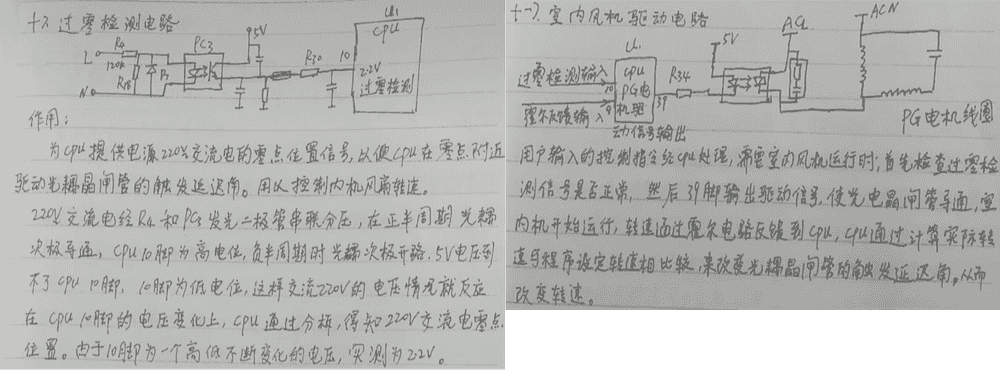 十二.过零检测电路
5V
U1
CPU
L
R4
120k
R18
D1
PC3
R30
10
2.2V
过零检测
N
作用:
为CPU提供电源220V交流电的零点位置信号,以便CPU在零点附近
驱动光耦晶闸管的触发延迟角。用以控制内机风扇转速。
220V交流电经R4和PC3发光二极管串联分压,在正半周期光耦
次极导通,CPU 10脚为高电位,负半周期时光耦次极开路,5V电压到
不了CPU 10脚,10脚为低电位,这样交流220V的电压情况就反应
在CPU 10脚的电压变化上,CPU通过分析,得知220V交流电零点
位置。由于10脚为一个高低不断变化的电压,实测为2.2V。
十一).室内风机驱动电路
ACN
ACL
5V
U1
过零检测输入
10
CPU
PG电
机驱
动信号输出
R34
39
霍尔反馈输入
9
PG电机线圈
用户输入的控制指令经CPU处理,需要室内风机运行时;首先检查过零检
测信号是否正常,然后39脚输出驱动信号,使光电晶闸管导通,室
内机开始运行,转速通过霍尔电路反馈到CPU,CPU通过计算实际转
速与程序设定转速相比较,来改变光耦晶闸管的触发延迟角,从而
改变转速。